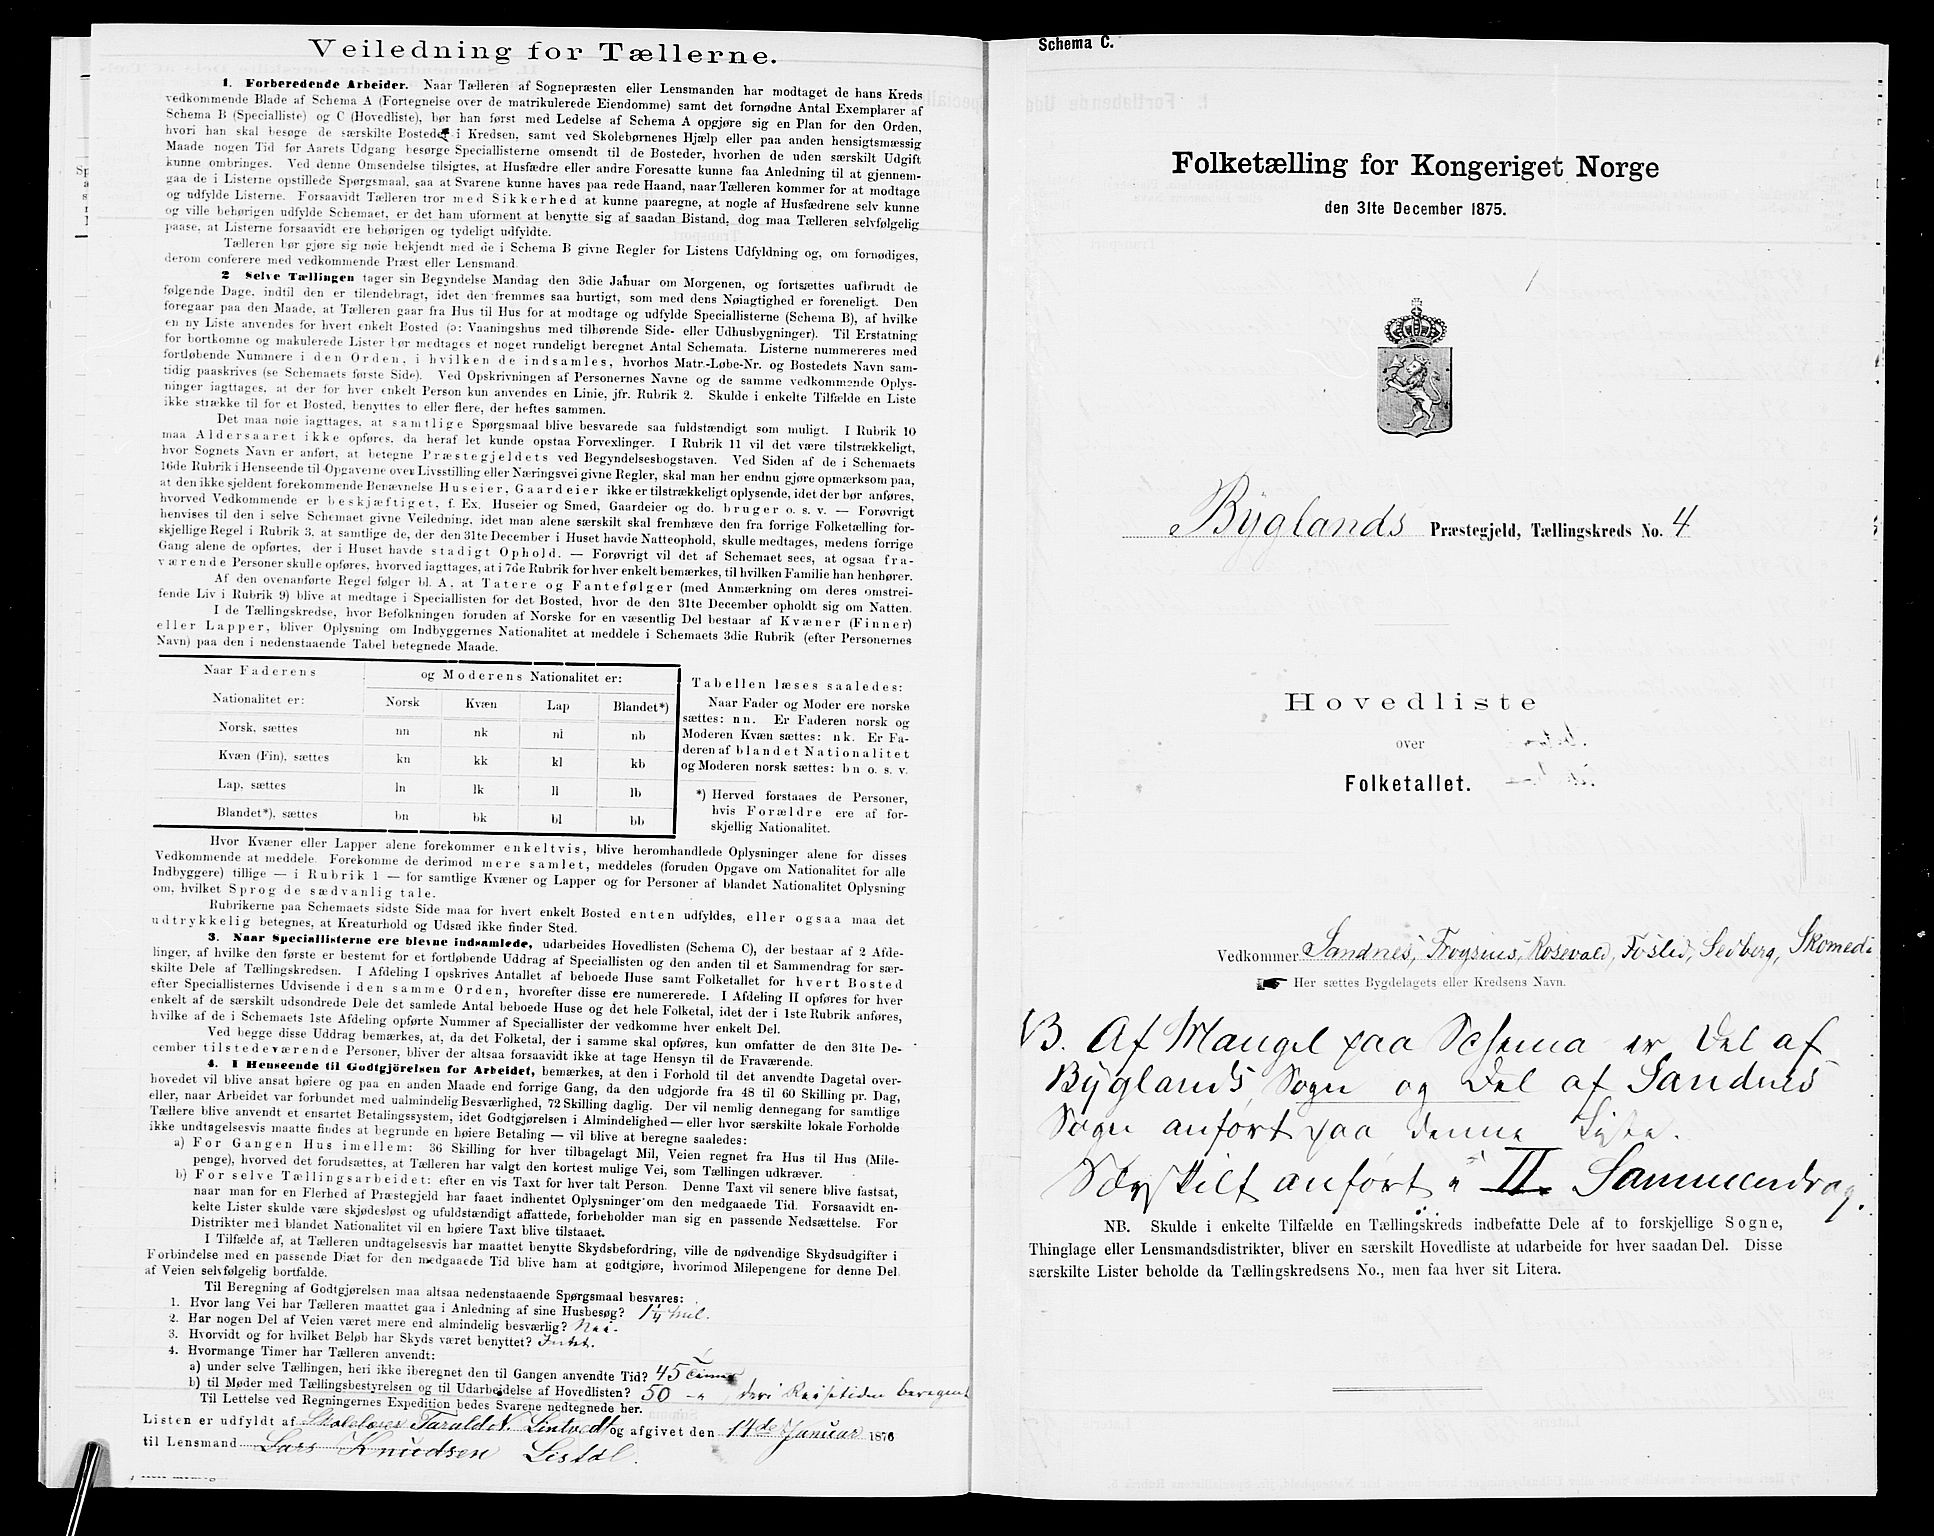 Veiledning for Tællerne.
1. Forberedende Arbeider. Naar Tælleren af Sognepræsten eller Lensmanden har modtaget de hans Kreds
vedkommende Blade af Schema A (Fortegnelse over de matrikulerede Eiendomme) samt det fornødne Antal Exemplarer af
Schema B (Specialliste) og C (Hovedliste), bør han først med Ledelse af Schema A opgjøre sig en Plan for den Orden,
hvori han skal besøge de særskilte Bosteder i Kredsen, samt ved Skolebørnenes Hjælp eller paa anden hensigtsmæssig
Maade nogen Tid før Aarets Udgang besørge Speciallisterne omsendt til de Bosteder, hvorhen de uden særskilt Udgift
kunne ombringes. Ved denne Omsendelse tilsigtes, at Husfædre eller andre Foresatte kunne faa Anledning til at gjennem-
gaa de i Listerne opstillede Spørgsmaal, saa at Svarene kunne haves paa rede Haand, naar Tælleren kommer for at modtage
og udfylde Listerne. Forsaavidt Tælleren tror med Sikkerhed at kunne paaregne, at nogle af Husfædrene selv kunne
og ville behørigen udfylde Schemaet, er det ham uforment at benytte sig af saadan Bistand, dog maa Tælleren selvfølgelig
paase, at Listerne forsaavidt ere behørigen og tydeligt udfyldte.
Tælleren bør gjøre sig nøie bekjendt med de i Schema B givne Regler for Listens Udfyldning og, om fornødiges,
derom conferere med vedkommende Præst eller Lensmand.
2 Selve Tællingen tager sin Begyndelse Mandag den 3die Januar om Morgenen, og fortsættes uafbrudt de
følgende Dage, indtil den er tilendebragt, idet den fremmes saa hurtigt, som med dens Nøiagtighed er foreneligt. Den
foregaar paa den Maade, at Tælleren gaar fra Hus til Hus for at modtage og udfylde Speciallisterne (Schema B), af hvilke
en ny Liste anvendes for hvert enkelt Bosted (ɔ: Vaaningshus med tilhørende Side- eller Udhusbygninger). Til Erstatning
for bortkomne og makulerede Lister bør medtages et noget rundeligt beregnet Antal Schemata. Listerne nummereres med
fortløbende Nummere i den Orden, i hvilken de indsamles, hvorhos Matr.-Løbe-Nr. og Bostedets Navn sam-
tidig paaskrives (se Schemaets første Side). Ved Opskrivningen af Personernes Navne og de samme vedkommende Oplys-
ninger iagttages, at der for hver enkelt Person kun anvendes en Linie, jfr. Rubrik 2. Skulde i enkelte Tilfælde en Liste
ikke strække til for et Bosted, benyttes to eller flere, der heftes sammen.
Det maa nøie iagttages, at samtlige Spørgsmaal blive besvarede saa fuldstændigt som muligt. I Rubrik 10
maa Aldersaaret ikke opføres, da heraf let kunde opstaa Forvexlinger. I Rubrik 11 vil det være tilstrækkeligt,
hvor Sognets Navn er anført, at betegne Præstegjeldets ved Begyndelsesbogstaven. Ved Siden af de i Schemaets
16de Rubrik i Henseende til Opgaverne over Livsstilling eller Næringsvei givne Regler, skal man her endnu gjøre opmærksom paa,
at den ikke sjeldent forekommende Benævnelse Huseier, Gaardeier ikke er tilstrækkeligt oplysende, idet der bør anføres,
hvorved Vedkommende er beskjæftiget, f. Ex. Huseier og Smed, Gaardeier og do. bruger o. s. v. — Forøvrigt
henvises til den i selve Schemaet givne Veiledning, idet man alene særskilt skal fremhæve den fra forrige Folketælling for-
skjellige Regel i Rubrik 3, at samtlige de, der den 31te December i Huset havde Natteophold, skulle medtages, medens forrige
Gang alene de opførtes, der i Huset havde stadigt Ophold. — Forøvrigt vil det af Schemaet sees, at ogsaa fra-
værende Personer skulle opføres, hvorved iagttages, at i 7de Rubrik for hver enkelt bemærkes, til hvilken Familie han henhører.
Af den ovenanførte Regel følger bl. A. at Tatere og Fantefølger (med Anmærkning om deres omstrei-
fende Liv i Rubrik 9) blive at medtage i Speciallisten for det Bosted, hvor de den 31te December opholdt sig om Natten.
I de Tællingskredse, hvor Befolkningen foruden af Norske for en væsentlig Del bestaar af Kvæner (Finner)
eller Lapper, bliver Oplysning om Indbyggernes Nationalitet at meddele i Schemaets 3die Rubrik (efter Personernes
Navn) paa den i nedenstaaende Tabel betegnede Maade.
Naar Faderens og Moderens Nationalitet er:
Nationalitet er: Norsk Kvæn Lap Blandet*)
Norsk, sættes nn nk nl nb
Kvæn (Fin), sættes kn kk kl kb
Lap, sættes ln lk ll lb
Blandet*), sættes bn bk bl bb
Tabellen læses saaledes:
Naar Fader og Moder ere norske
sættes: nn. Er Faderen norsk og
Moderen Kvæn sættes: nk. Er Fa-
deren af blandet Nationalitet
og Moderen norsk sættes: bn o. s. v.
*) Herved forstaaes de Personer,
hvis Forældre ere af for-
skjellig Nationalitet.
Hvor Kvæner eller Lapper alene forekommer enkeltvis, blive heromhandlede Oplysninger alene for disses
Vedkommende at meddele. Forekomme de derimod mere samlet, meddeles (foruden Opgave om Nationalitet for alle
Indbyggere) tillige — i Rubrik 1 — for samtlige Kvæner og Lapper og for Personer af blandet Nationalitet Oplysning
om, hvilket Sprog de sædvanlig tale.
Rubrikerne paa Schemaets sidste Side maa for hvert enkelt Bosted enten udfyldes, eller ogsaa maa det
udtrykkelig betegnes, at Kreaturhold og Udsæd ikke finder Sted.
3. Naar Speciallisterne ere blevne indsamlede, udarbeides Hovedlisten (Schema C), der bestaar af 2 Afde-
linger, af hvilke den første er bestemt for et fortløbende Uddrag af Speciallisten og den anden til et Sammendrag for sær-
skilte Dele af Tællingskredsen. I Afdeling I opskrives Antallet af beboede Huse samt Folketallet for hvert Bosted
efter Speciallisternes Udvisende i den samme Orden, hvorefter disse ere numererede. I Afdeling II opføres for hver
enkelt af de særskilt udsondrede Dele det samlede Antal beboede Huse og det hele Folketal, idet der i 1ste Rubrik anføres,
hvilke af de i Schemaets 1ste Afdeling opførte Nummer af Speciallister der vedkomme hver enkelt Del.
Ved begge disse Uddrag bemærkes, at, da det Folketal, der i samme skal opføres, kun omfatter de den 31te De-
cember tilstedeværende Personer, bliver der altsaa forsaavidt ikke at tage Hensyn til de Fraværende.
4. I Henseende til Godtgjörelsen for Arbeidet, bemærkes, at den i Forhold til det anvendte Dagetal over-
hovedet vil blive ansat høiere og paa en anden Maade end forrige Gang, da den udgjorde fra 48 til 60 Skilling pr. Dag,
eller, naar Arbeidet var forbundet med ualmindelig Besværlighed, 72 Skilling daglig. Der vil nemlig dennegang for samtlige
Tællere blive anvendt et ensartet Betalingssystem, idet Godtgjørelsen i Almindelighed — eller hvor særskilte lokale Forholde
ikke undtagelsesvis maatte findes at begrunde en høiere Betaling — vil blive at beregne saaledes:
a) For Gangen Hus imellem: 36 Skilling for hver tilbagelagt Mil, Veien regnet fra Hus til Hus (Mile-
penge), hvorved det forudsættes, at Tælleren har valgt den kortest mulige Vei, som Tællingen udkræver.
b) For selve Tællingsarbeidet: efter en vis Taxt for hver talt Person. Denne Taxt vil senere blive fastsat,
naar man for en Flerhed af Præstegjeld har faaet indhentet Oplysninger om den medgaaede Tid. Forsaavidt en-
kelte Lister skulde være skjødesløst og ufuldstændigt affattede, forbeholder man sig en passende Nedsættelse. For
Distrikter med blandet Nationalitet vil en høiere Taxt blive tilstaaet.
I Tilfælde af, at Tælleren undtagelsesvis har maattet benytte Skydsbefordring, ville de nødvendige Skydsudgifter i
Forbindelse med en passende Diæt for den medgaaede Tid blive ham at godtgjøre, hvorimod Milepengene for denne Del
af Veien selvfølgelig bortfalde.
Til Beregning af Godtgjörelsen maa altsaa nedenstaaende Spørgsmaal besvares:
1. Hvor lang Vei har Tælleren maattet gaa i Anledning af sine Husbesøg? 1 1/4 Mil.
2. Har nogen Del af Veien været mere end almindelig besværlig? Nei.
3. Hvorvidt og for hvilket Beløb har Skyds været benyttet? Intet.
4. Hvormange Timer har Tælleren anvendt:
a) under selve Tællingen, heri ikke iberegnet den til Gangen anvendte Tid? 45 Timer
b) til Møder med Tællingsbestyrelsen og til Udarbeidelse af Hovedlisten? 50 — " , deri Reisetiden beregnet
Til Lettelse ved Regningernes Expedition bedes Svarene nedtegnede her.
Listen er udfyldt af Skolelærer Tarald N. Lintvedt og afgivet den 14de Januar 1876
til Lensmand Lars Knudsen Lisdal.
Schema C.
Folketælling for Kongeriget Norge
den 31te December 1875.
Byglands Præstegjeld, Tællingskreds No. 4
Hovedliste
over
Folketallet.
Vedkommer Sandnes, Froysnes, Rosevald, Föslid, Sedberg, Skomedal
Her sættes Bygdelagets eller Kredsens Navn.
NB. Af Mangel paa Schema er Del af
Byglands Sogn og Del af Sandnes
Sogn anfört paa denne Liste.
Særskilt anfört i II. Sammendrag.
NB. Skulde i enkelte Tilfælde en Tællingskreds indbefatte Dele af to forskjellige Sogne,
Thinglage eller Lensmandsdistrikter, bliver en særskilt Hovedliste at udarbeide for hver saadan Del. Disse
særskilte Lister beholde da Tællingskredsens No., men faa hver sit Litera.